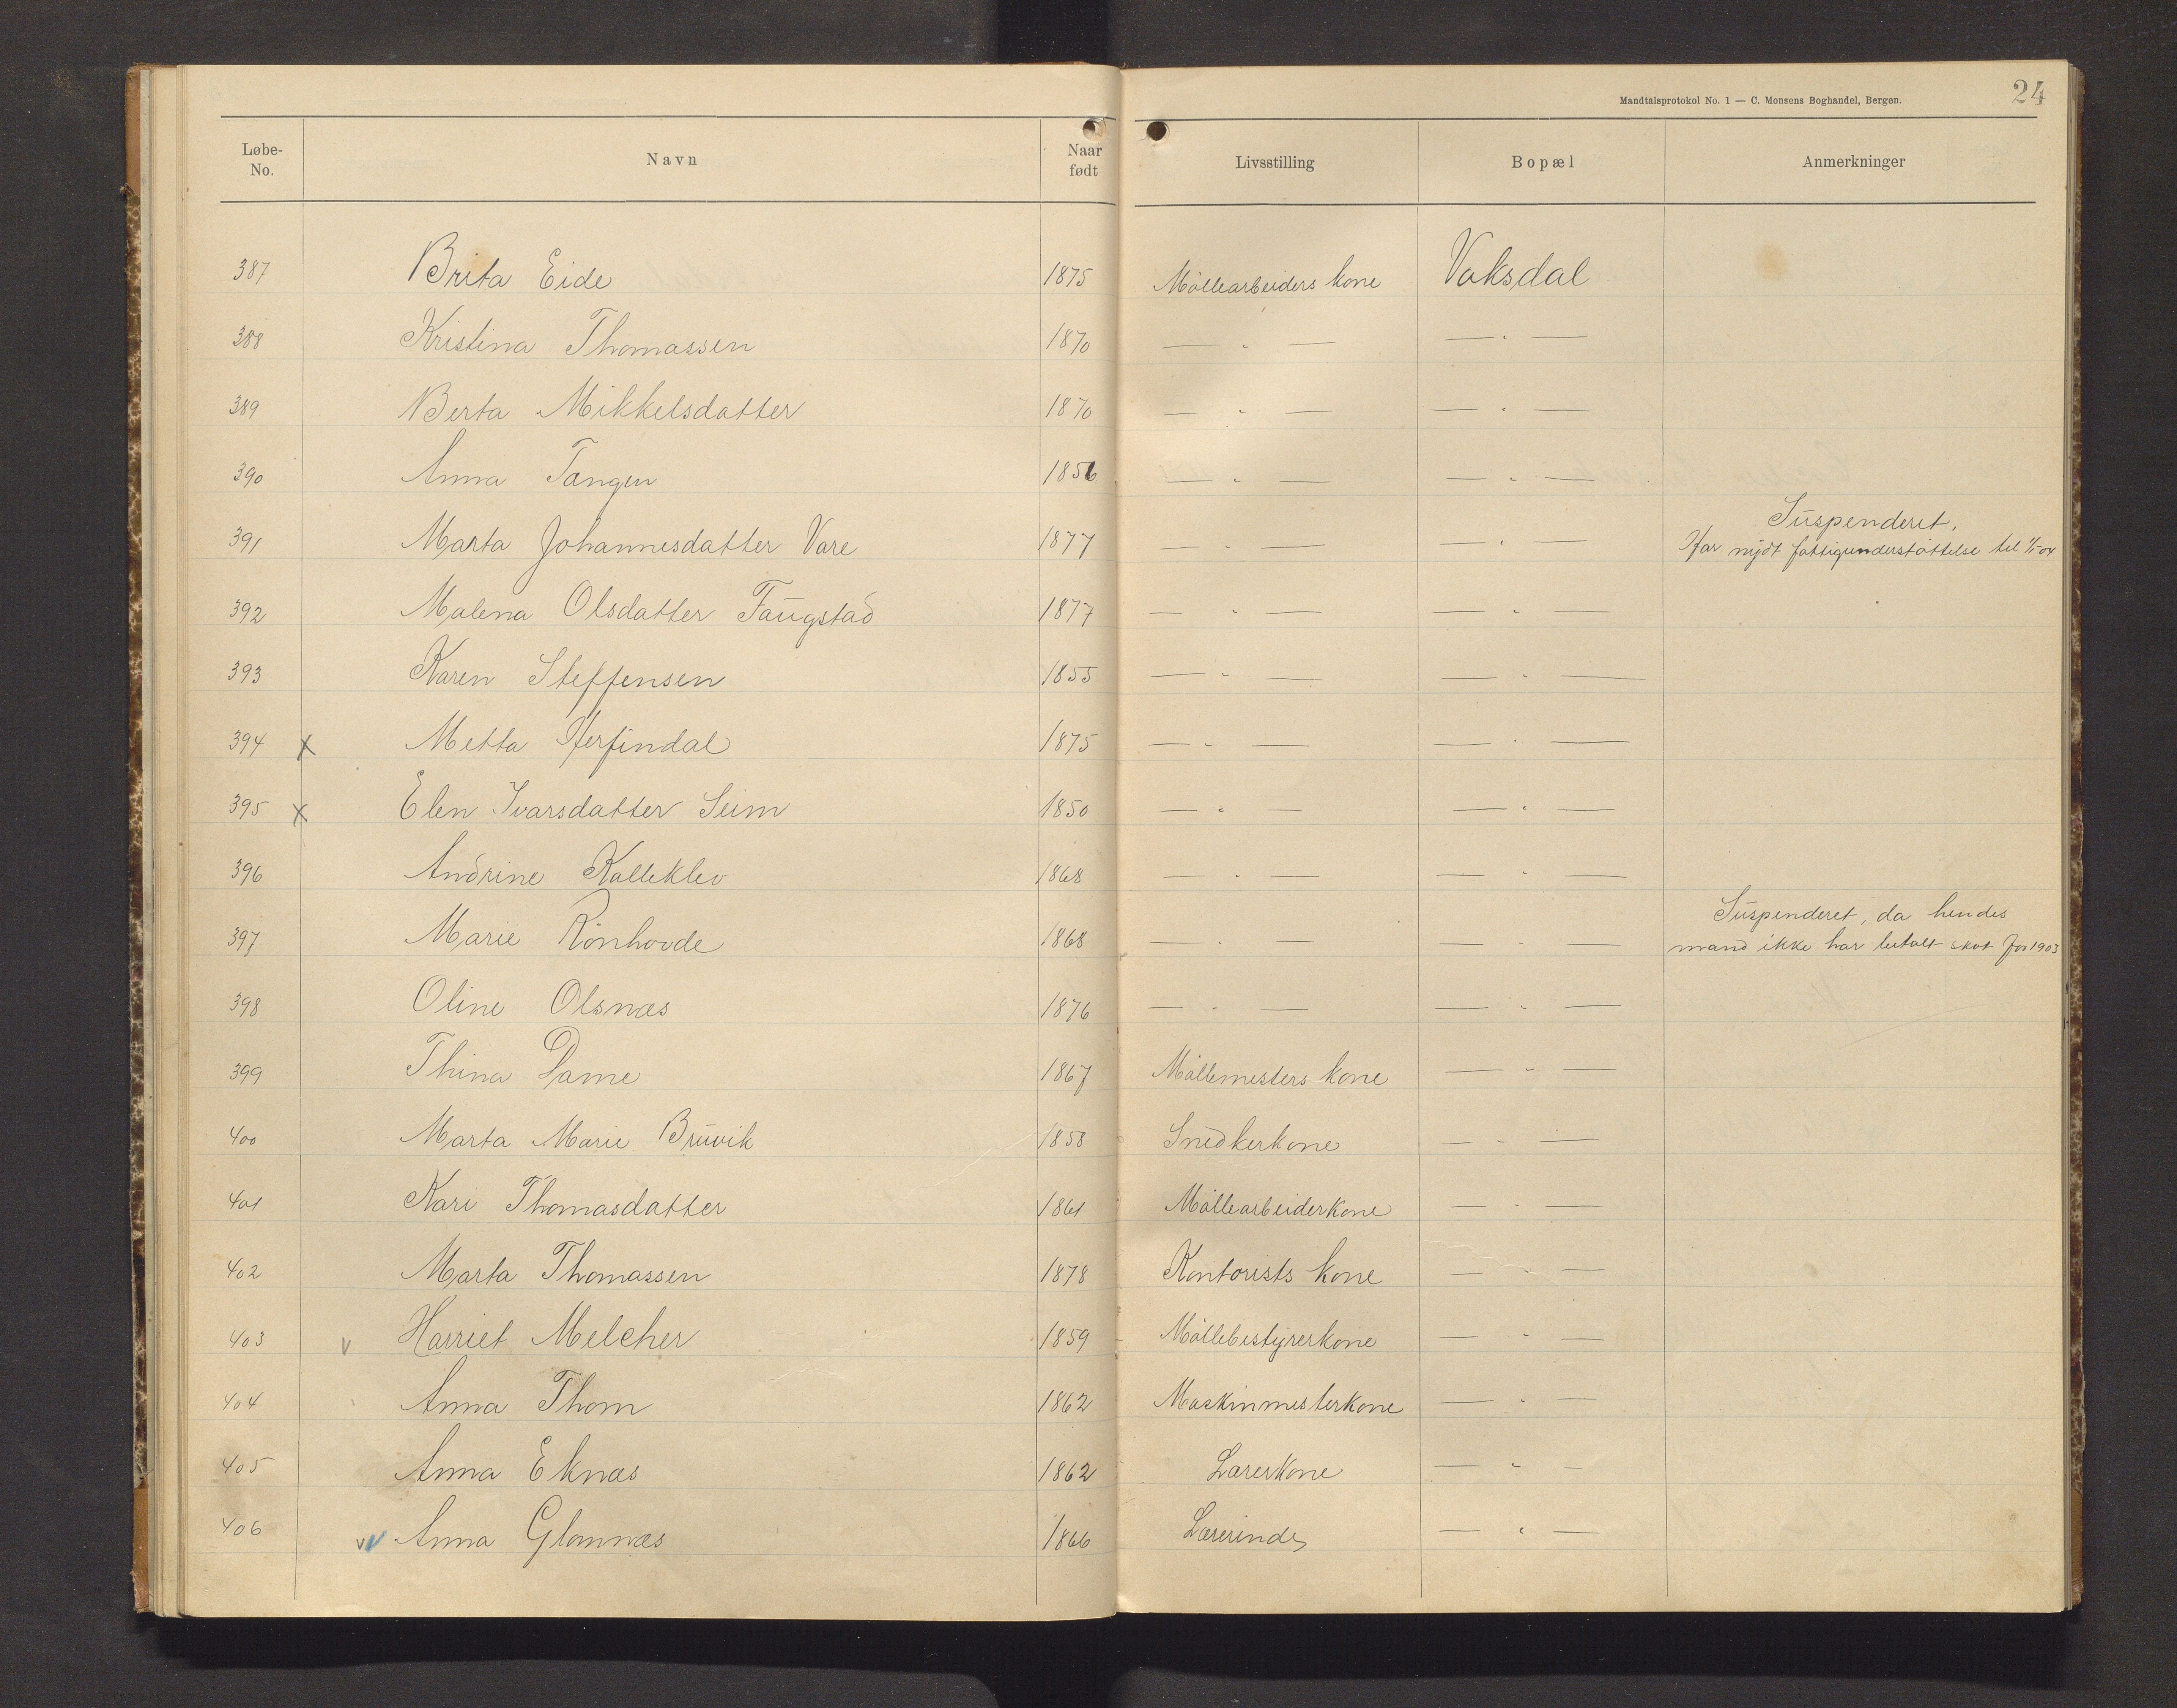 Mandtalsprotokol No. 1 — C. Monsens Boghandel, Bergen.
24
Løbe-No. Navn Naar født Livsstilling Bopæl Anmerkninger
387 Brita Eide 1875 Möllearbeiders kone Vaksdal
388 Kristina Thomassen 1870 — " — — " —
389 Berta Mikkelsdatter 1870 — " — — " —
390 Anna Tangen 1856 — " — — " —
Suspenderet.
391 Marta Johannesdatter Vare 1877 — " — — " — Har nydt fattigunderstöttelse til 1/1-04
392 Malena Olsdatter Faugstad 1877 — " — — " —
393 Karen Steffensen 1855 — " — — " —
394 x Metta Herfindal 1875 — " — — " —
395 x Elen Ivarsdatter Seim 1850 — " — — " —
396 Andrine Kalleklev 1868 — " — — " —
Suspenderet, da hendes
397 Marie Rönhovde 1868 — " — — " — mand ikke har betalt skat for 1903
398 Oline Olsnæs 1876 — " — — " —
399 Thina Dame 1867 Möllemesters kone — " —
400 Marta Marie Bruvik 1858 Snedkerkone — " —
401 Kari Thomasdatter 1861 Möllearbeiderkone — " —
402 Marta Thomassen 1878 Kontorists kone — " —
403 v Harriet Melcher 1859 Möllebestyrerkone — " —
404 Anna Thom 1862 Maskinmesterkone — " —
405 Anna Eknæs 1862 Lærerkone — " —
406 vv Anna Glamnæs 1866 Lærerinde — " —